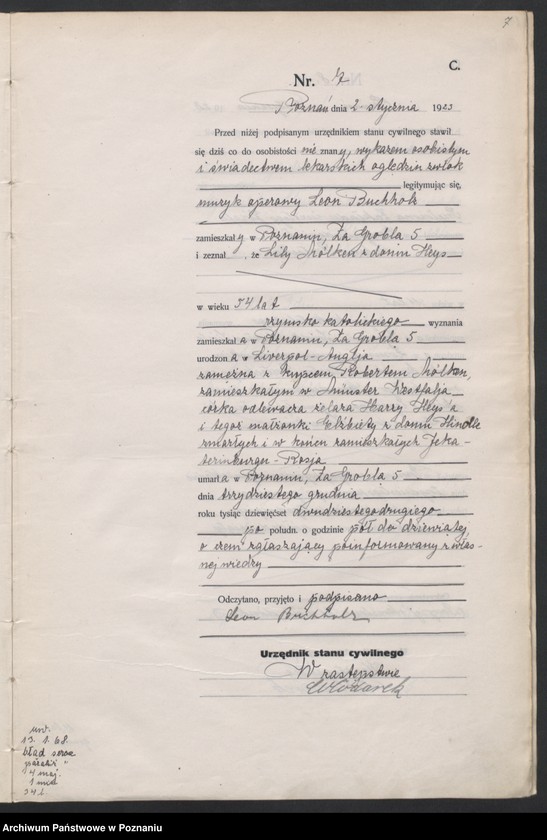 7
C.
Nr. 7
Poznań dnia 2 stycznia 1923
Przed niżej podpisanym urzędnikiem stanu cywilnego stawił
się dziś co do osobistości nie znany, wykazem osobistym
i świadectwem lekarskich oględzin zwłok
legitymując się,
muzyk operowy Leon Buchholz
zamieszkały w Poznaniu, Za Groblą 5
i zeznał, że Lily Mölken z domu Heys
w wieku 54 lat
rzymsko katolickiego wyznania
zamieszkała w Poznaniu, Za Groblą 5
urodzona w Liverpol - Anglja
zamężna z kupcem Robertem Mölken,
zamieszkałym w Münster Westfalja
córka odlewacza żelaza Harry Heys'a
i tegoż małżonki Elżbiety z domu Hindle
zmarłych i w końcu zamieszkałych Jeka-
terinburger - Rosja
umarła w Poznaniu, Za Groblą 5
dnia trzydziestego grudnia
roku tysiąc dziewięćset dwudziestegodrugiego
po połudn. o godzinie pół do dziewiątej
o czem zgłaszający poinformowany z włas-
nej wiedzy
Odczytano, przyjęto i podpisano
Leon Buchholz
Urzędnik stanu cywilnego
W zastępstwie
Włodarek
13. 1. 68.
błąd serca
4 maj.
54 l.
Archiwum Państwowe w Poznaniu